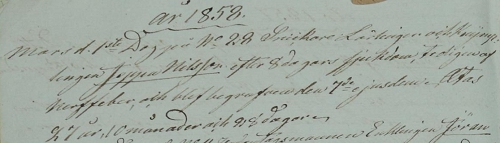 år 1858.
Mars d. 1ste Dog på No 28 Snickare Lärlingen och Yng-
lingen Jeppa Nilsson efter 8 dagars sjukdom, födig
Nerffeber, och blef begrafven den 7de ejusdem. Ætas
27 år, 10 månader och 28 dagar.
Enklingen Jöran